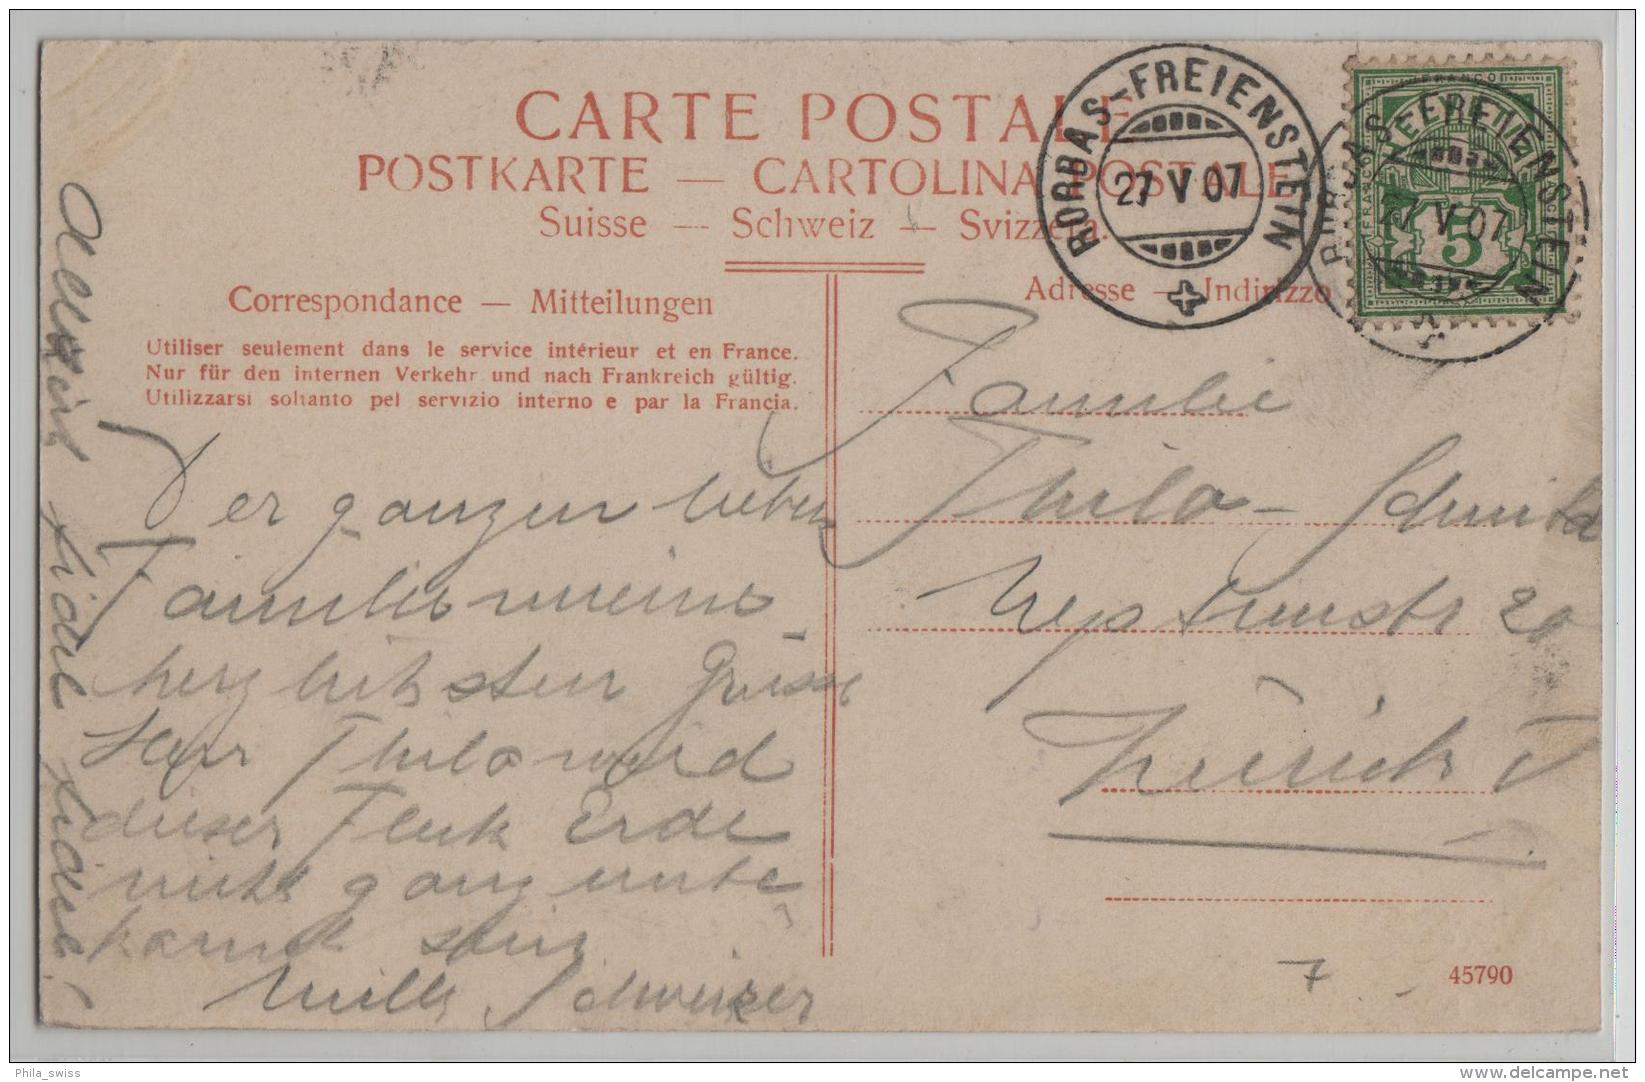 CARTE POSTALE
POSTKARTE — CARTOLINA POSTALE
Suisse — Schweiz — Svizzera.
Correspondance — Mitteilungen
Adresse — Indirizzo
Utiliser seulement dans le service intérieur et en France.
Nur für den internen Verkehr und nach Frankreich gültig.
Utilizzarsi soltanto pel servizio interno e par la Francia.
RORBAS-FREIENSTEIN
27 V 07
FRANCO
5
RORBAS-FREIENSTEIN
27 V 07
Der ganzen lieben
Familie meine
herzlichsten Grüsse
Herr Thilo wird
dieser Fleck Erde
nicht ganz unbe
kannt sein
Willy Schweizer
Familie
Thilo - Schmid
Neptunstr 20
Zürich V
7
45790
Phila_swiss
www.delcampe.net